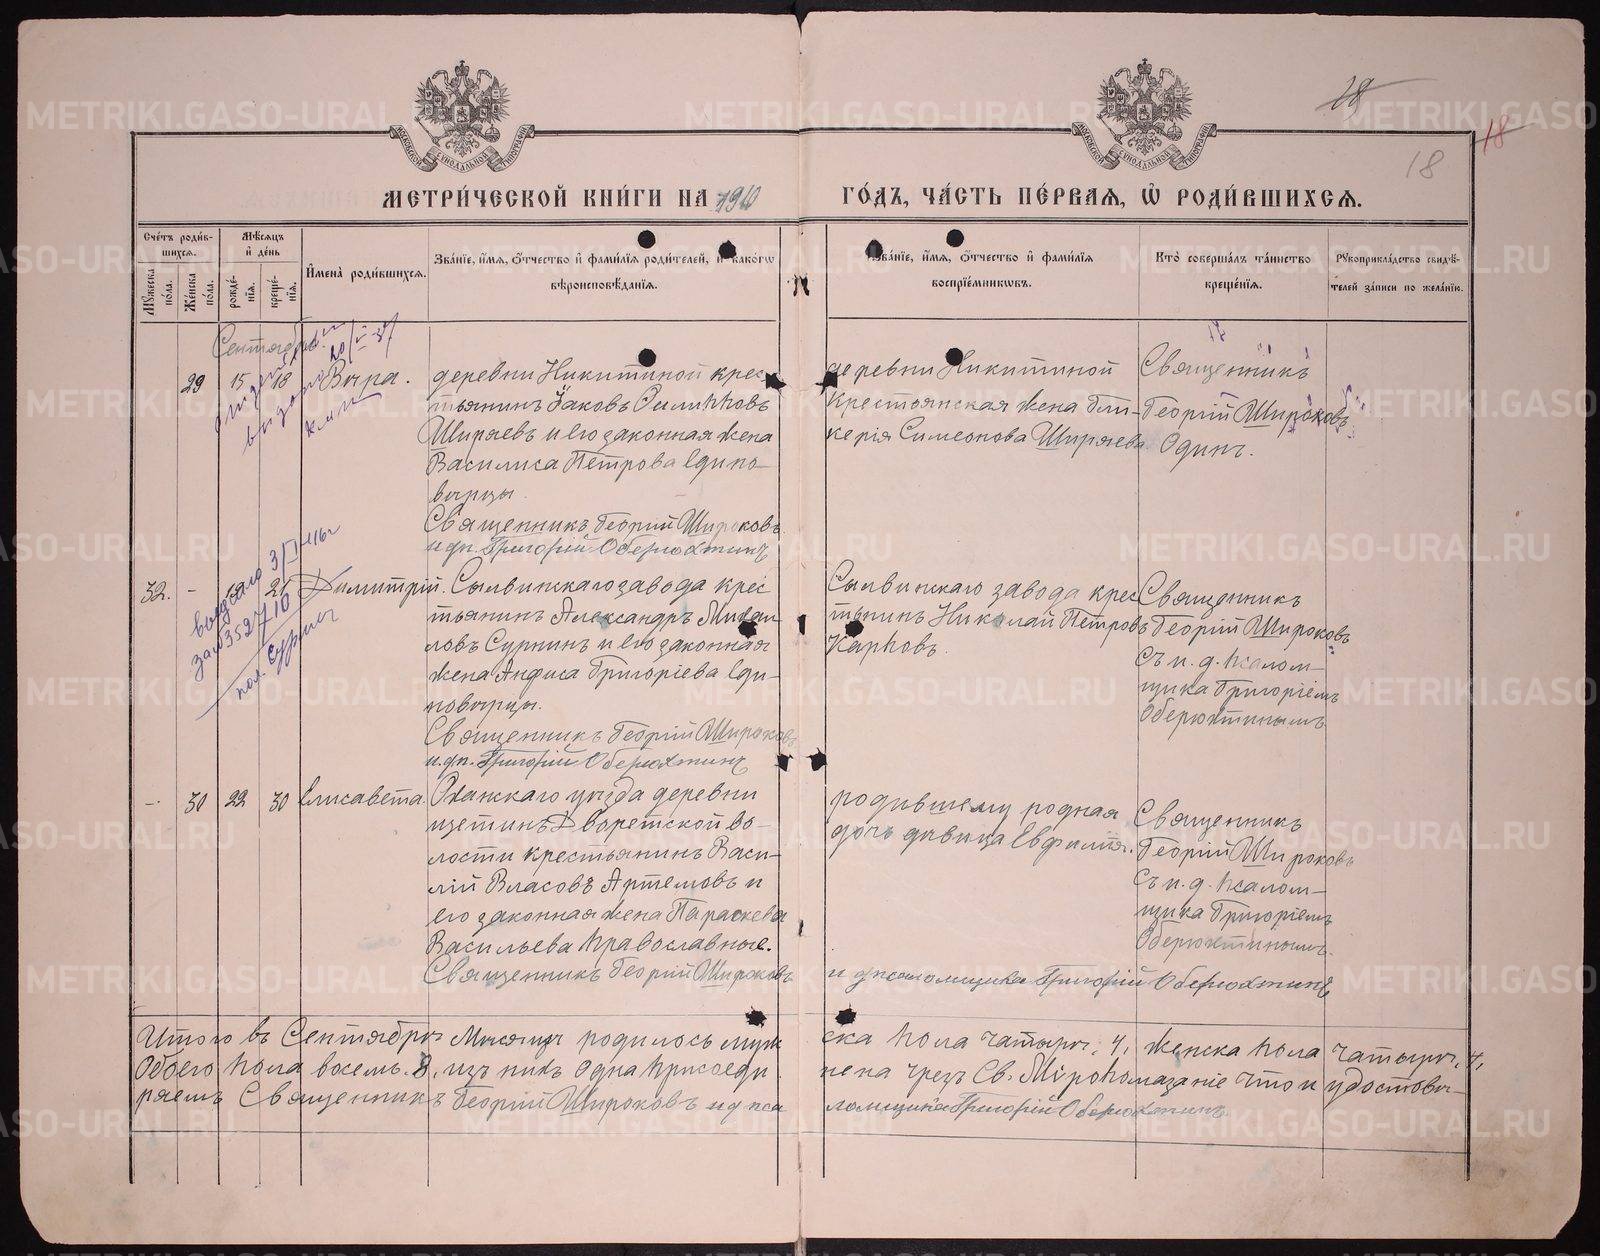 18
18
18
МОСКОВСКОЙ СѴНОДАЛЬНОЙ ТИПОГРАФІИ
МОСКОВСКОЙ СѴНОДАЛЬНОЙ ТИПОГРАФІИ
МЕТРИ́ЧЕСКОЙ КНИ́ГИ НА 1910 ГО́ДЪ, ЧА́СТЬ ПЕ́РВАЯ, Ѽ РОДИ́ВШИХСѦ.
Сче́тъ роди́в-
шихсѧ.
Мꙋжеска по́ла.
Же́нска по́ла.
Мѣ́сѧцъ
и҆ де́нь
рожде́-
нїѧ.
креще́-
нїѧ.
И҆мена̀ роди́вшихсѧ.
Зва́нїе, и҆́мѧ, ѻ҆́тчество и҆ фами́лїѧ роди́телей, и҆ како́гѡ
вѣроисповѣ́данїѧ.
Зва́нїе, и҆́мѧ, ѻ҆́тчество и҆ фами́лїѧ
воспрїе́мникѡвъ.
Кто̀ соверша́лъ та́инство
креще́нїѧ.
Рꙋкоприкла́дство свидѣ́-
телей за́писи по жела́нїю.
Сентябрь
29 15 18 Вѣра.
деревни Никитиной крес-
тьянинъ Іаковъ Силинъ
Ширяевъ и его законная жена
Василиса Петрова едино-
вѣрцы.
Священникъ Георгій Широковъ
и дп. Григорій Оберюхтинъ
деревни Никитиной
крестьянская жена Гли-
керія Симеонова Ширяева
Священникъ
Георгій Широковъ
Одинъ.
выдано 20/V-37
выдано 3/I-46г
32. - 21 Димитрій.
Сылвинскаго завода крес
тьянинъ Александръ Михаи
ловъ Сурнинъ и его законная
жена Анфиса Григоріева еди-
новѣрцы.
Священникъ Георгій Широковъ
и.дп. Григорій Оберюхтинъ
Сылвинскаго завода крес
тьянинъ Николай Петровъ
Карповъ.
Священникъ
Георгій Широковъ
Съ и. д. псалом-
щика Григоріемъ
Оберюхтинымъ
- 30 22 30 Елисавета.
Оханскаго уѣзда деревни
Щетинъ Дворетской во-
лости крестьянинъ Васи-
лій Власовъ Артемовъ и
его законная жена Параскева
Васильева православные.
Священникъ Георгій Широковъ
и д псаломщика Григорій Оберюхтинъ
родившему родная
дочь дѣвица Евфимія.
Священникъ
Георгій Широковъ
Съ и. д. псалом-
щика Григоріемъ
Оберюхтинымъ.
Итого въ Сентябрѣ Мѣсяцѣ родилось муж ска пола четыре, 4, женска пола четыре, 4,
Обоего пола восемь. 8. изъ нихъ одна присоеди нена чрезъ Св. Мѵропомазаніе Что и удостовѣ-
ряемъ Священникъ Георгій Широковъ и д пса ломщика Григорій Оберюхтинъ
METRIKI.GASO-URAL.RU